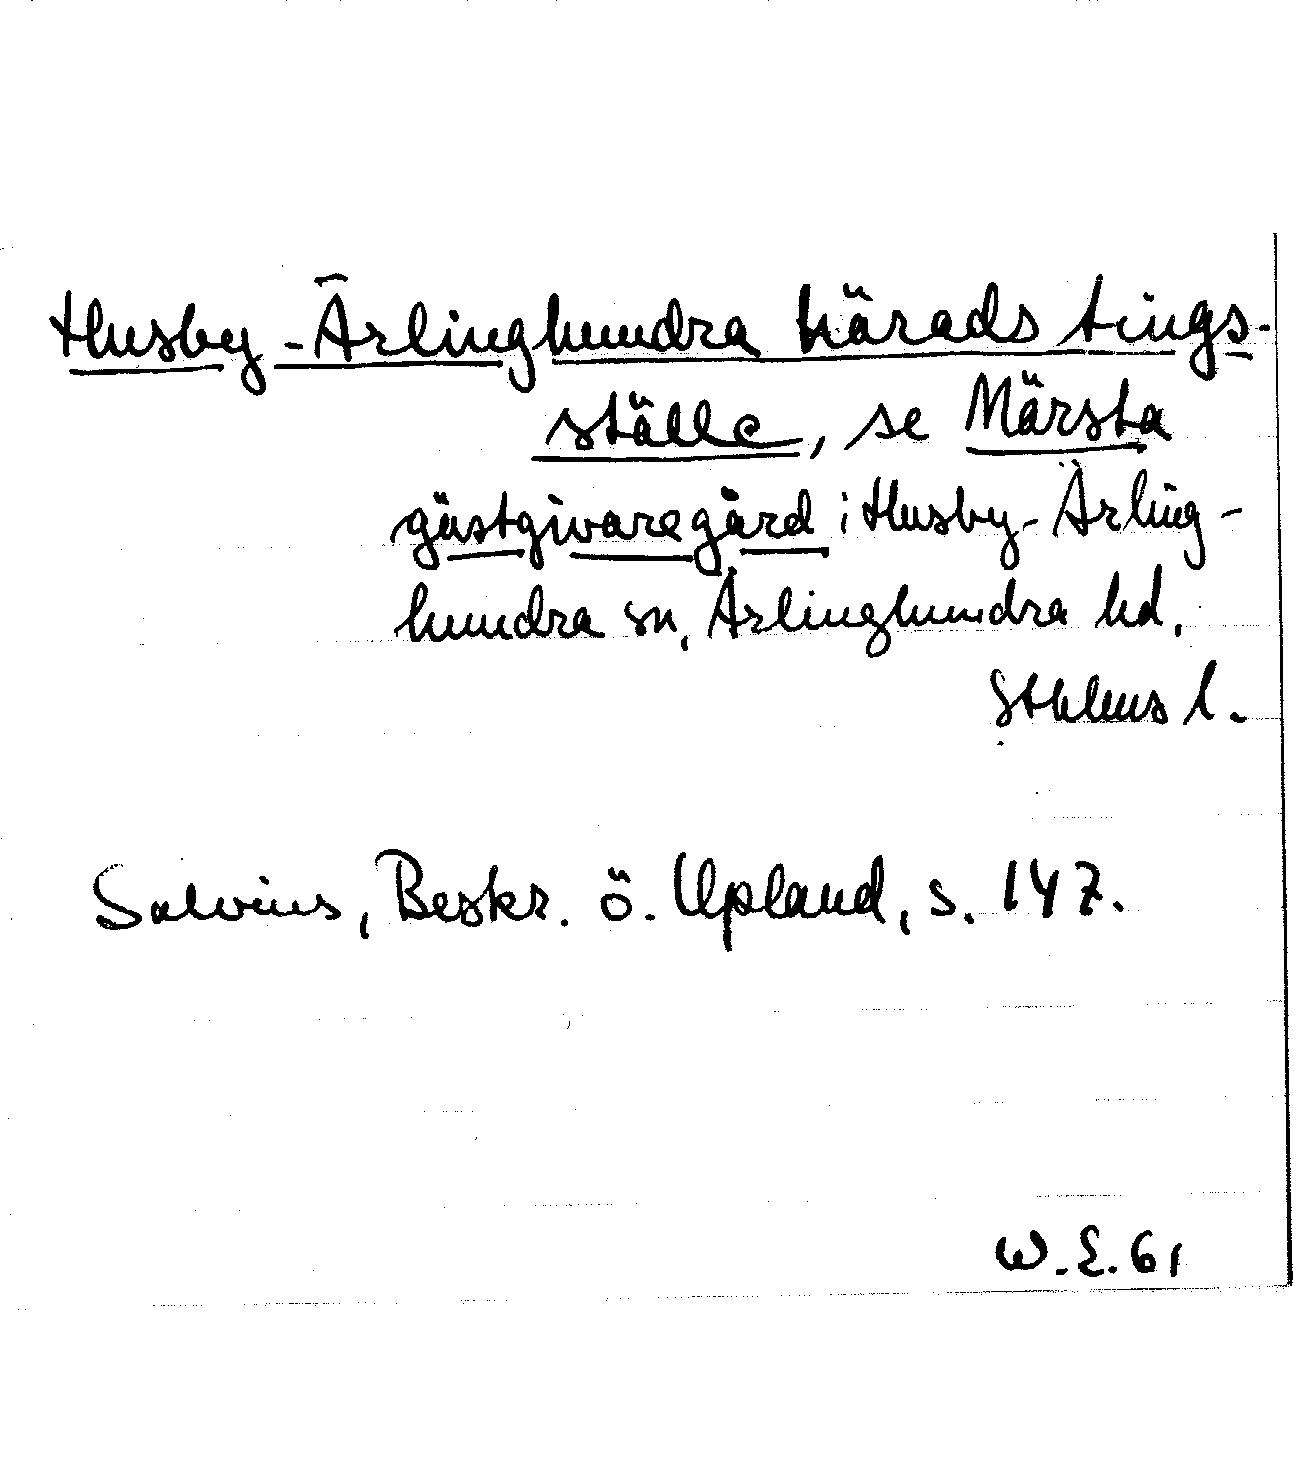 Husby-Ärlinghundra härads tings-
ställe, se Märsta
gästgivaregård i Husby-Ärling-
hundra sn, Ärlinghundra hd,
Sthlms l.
Salvius, Beskr. ö. Upland, s. 147.
W.E. 61